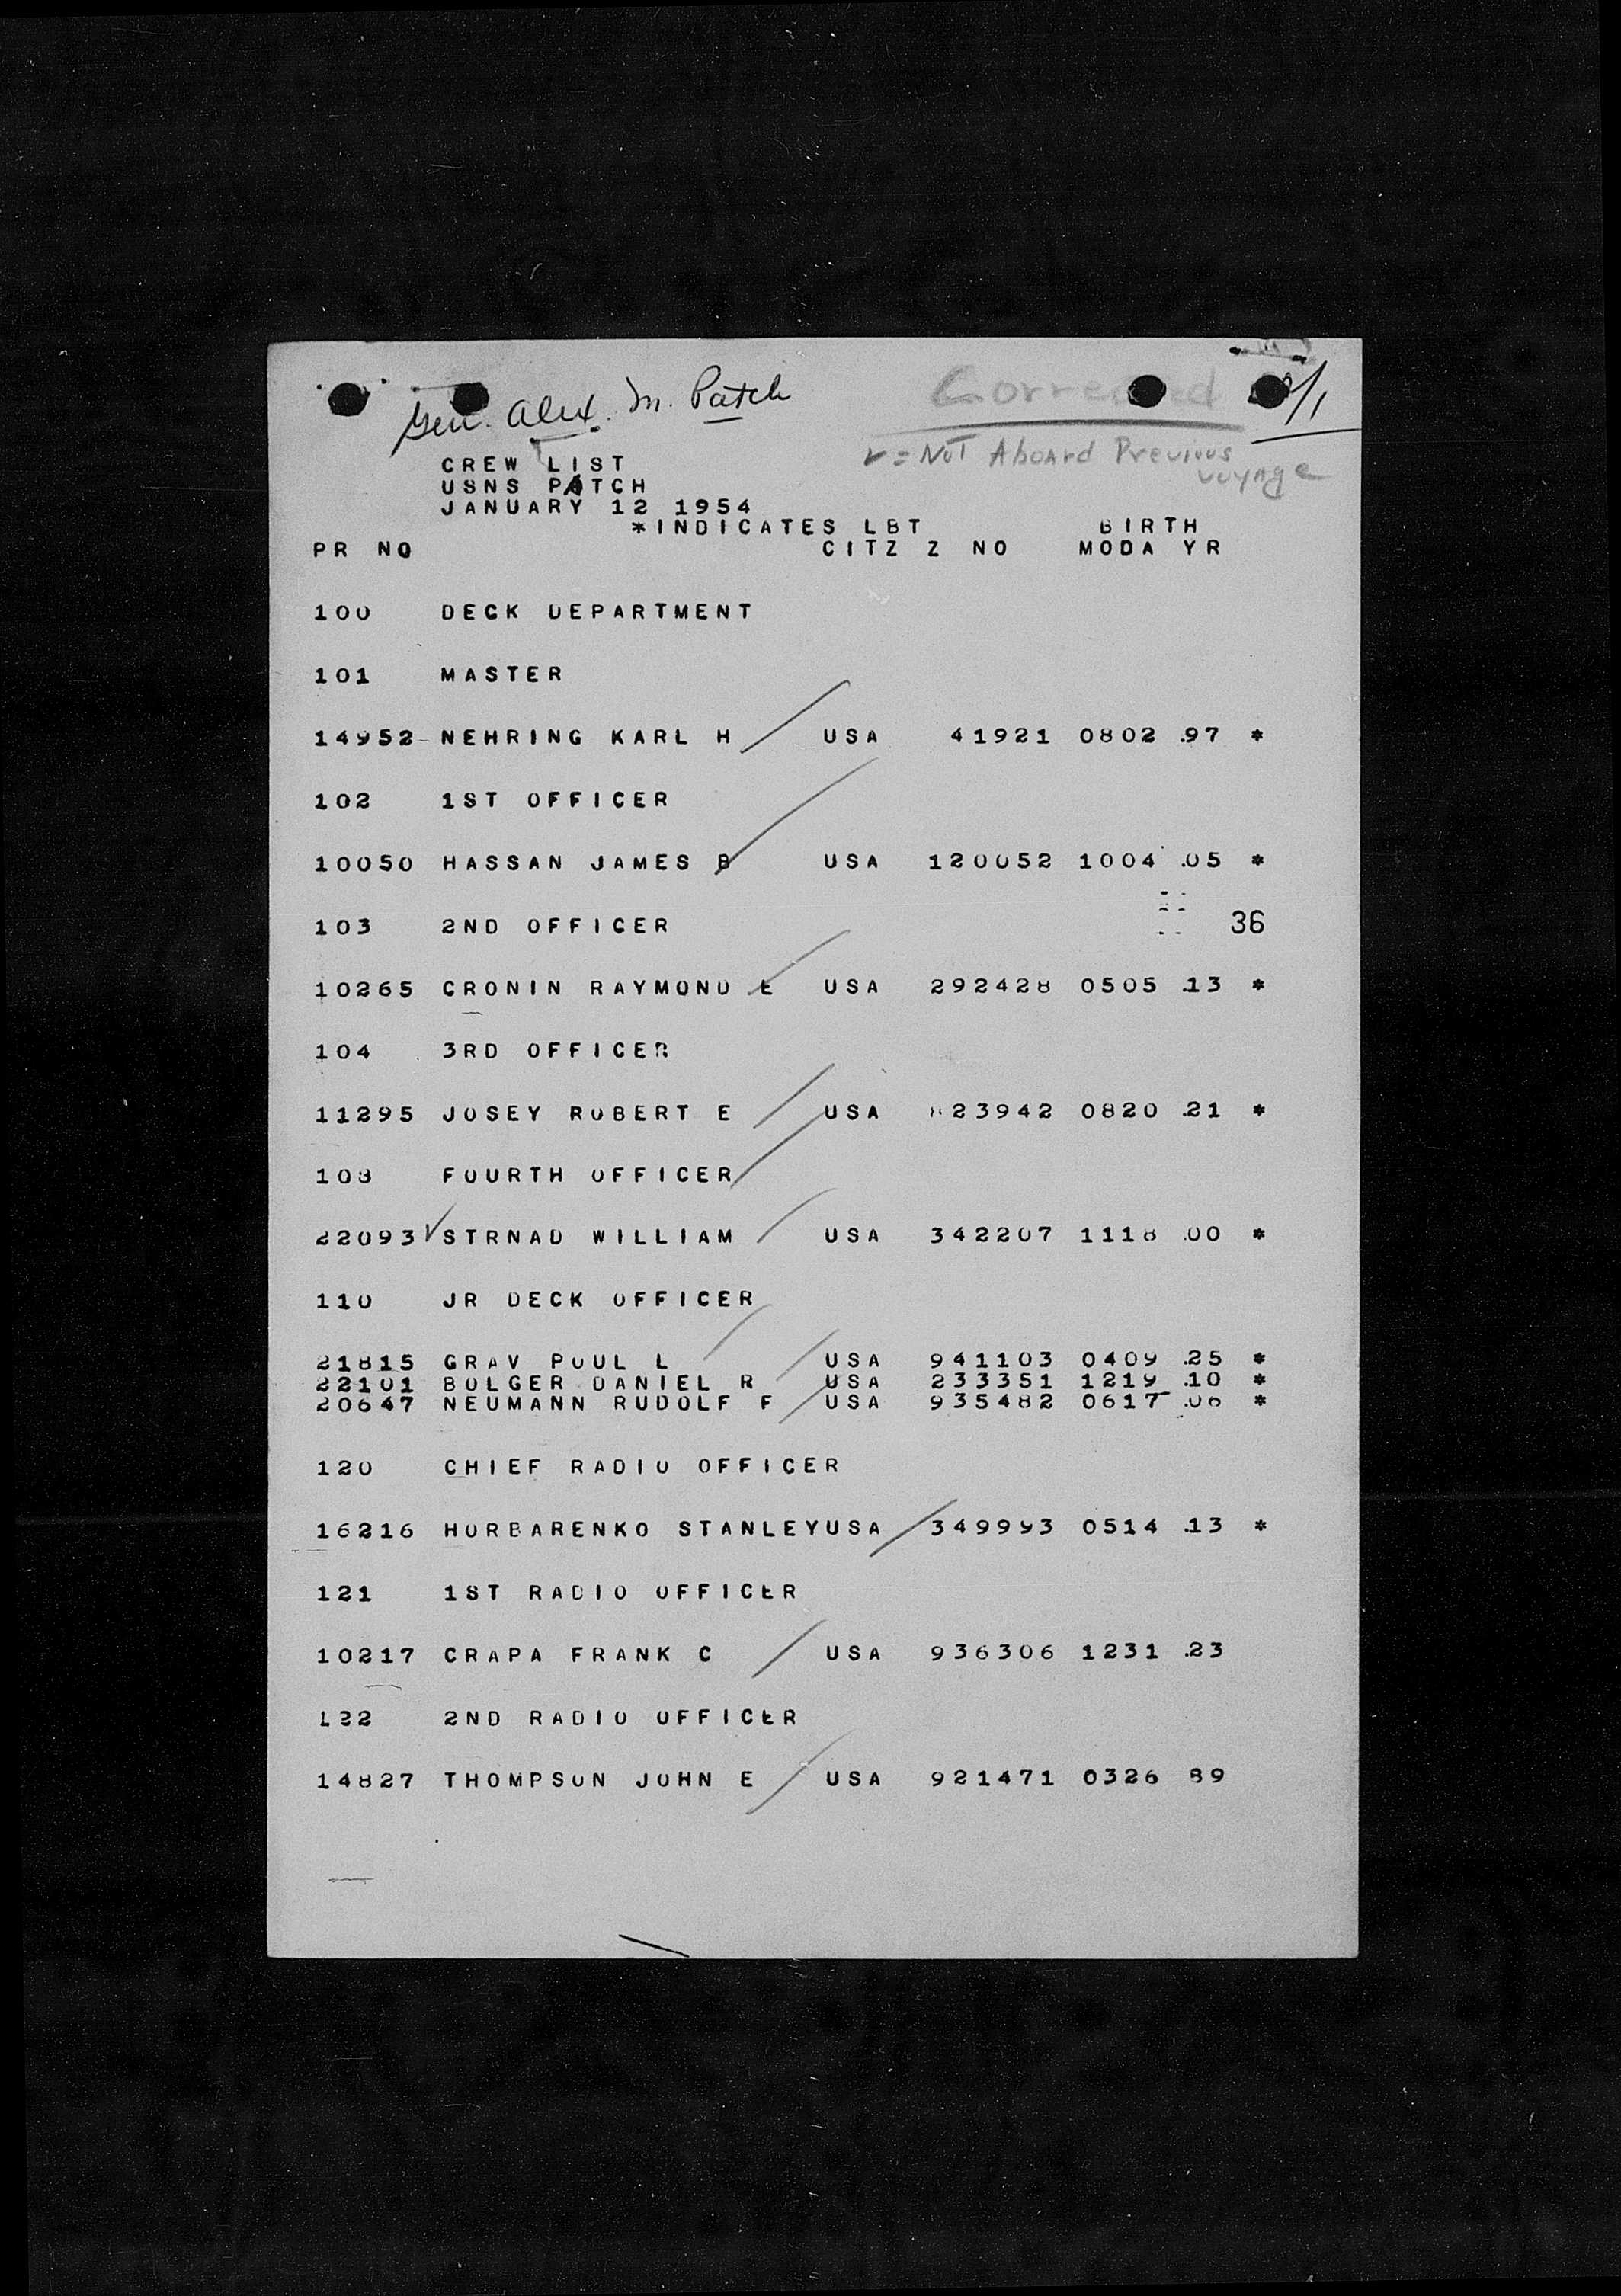 Gen. Alex. M. Patch
Corrected
✓ = Not Aboard Previous
voyage
CREW LIST
USNS PATCH
JANUARY 12 1954
*INDICATES LBT BIRTH
PR NO CITZ Z NO MODA YR
100 DECK DEPARTMENT
101 MASTER
14952 NEHRING KARL H USA 41921 0802 .97 *
102 1ST OFFICER
10050 HASSAN JAMES B USA 120052 1004 .05 *
103 2ND OFFICER 36
10265 CRONIN RAYMOND E USA 292428 0505 .13 *
104 3RD OFFICER
11295 JOSEY ROBERT E USA 823942 0820 .21 *
108 FOURTH OFFICER
22093 ✓ STRNAD WILLIAM USA 342207 1118 .00 *
110 JR DECK OFFICER
21815 GRAV POUL L USA 941103 0409 .25 *
22101 BOLGER DANIEL R USA 233351 1219 .10 *
20647 NEUMANN RUDOLF F USA 935482 0617 .06 *
120 CHIEF RADIO OFFICER
16216 HORBARENKO STANLEYUSA 349993 0514 .13 *
121 1ST RADIO OFFICER
10217 CRAPA FRANK C USA 936306 1231 .23
122 2ND RADIO OFFICER
14827 THOMPSON JOHN E USA 921471 0326 89